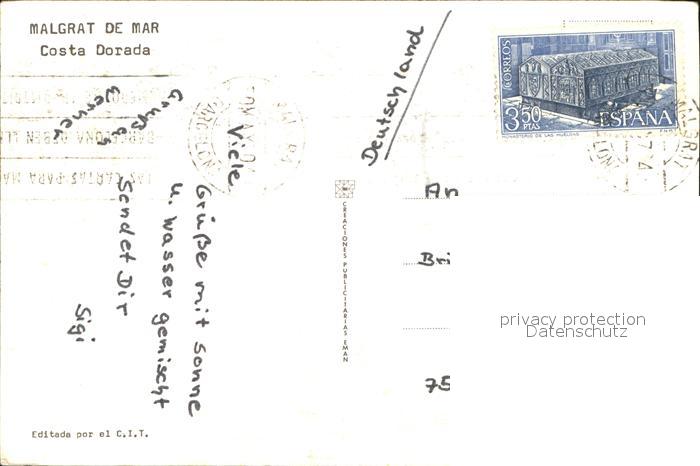 MALGRAT DE MAR
Costa Dorada
Deutschland
CORREOS
3,50
PTAS
ESPAÑA
MONASTERIO DE LAS HUELGAS
F.N.M.T.
Viele
Grüße mit Sonne
u. Wasser gemischt
Sendet Dir
Sigi
CREACIONES PUBLICITARIAS EMAN
An
Bri
75
privacy protection
Datenschutz
Editada por el C.I.T.